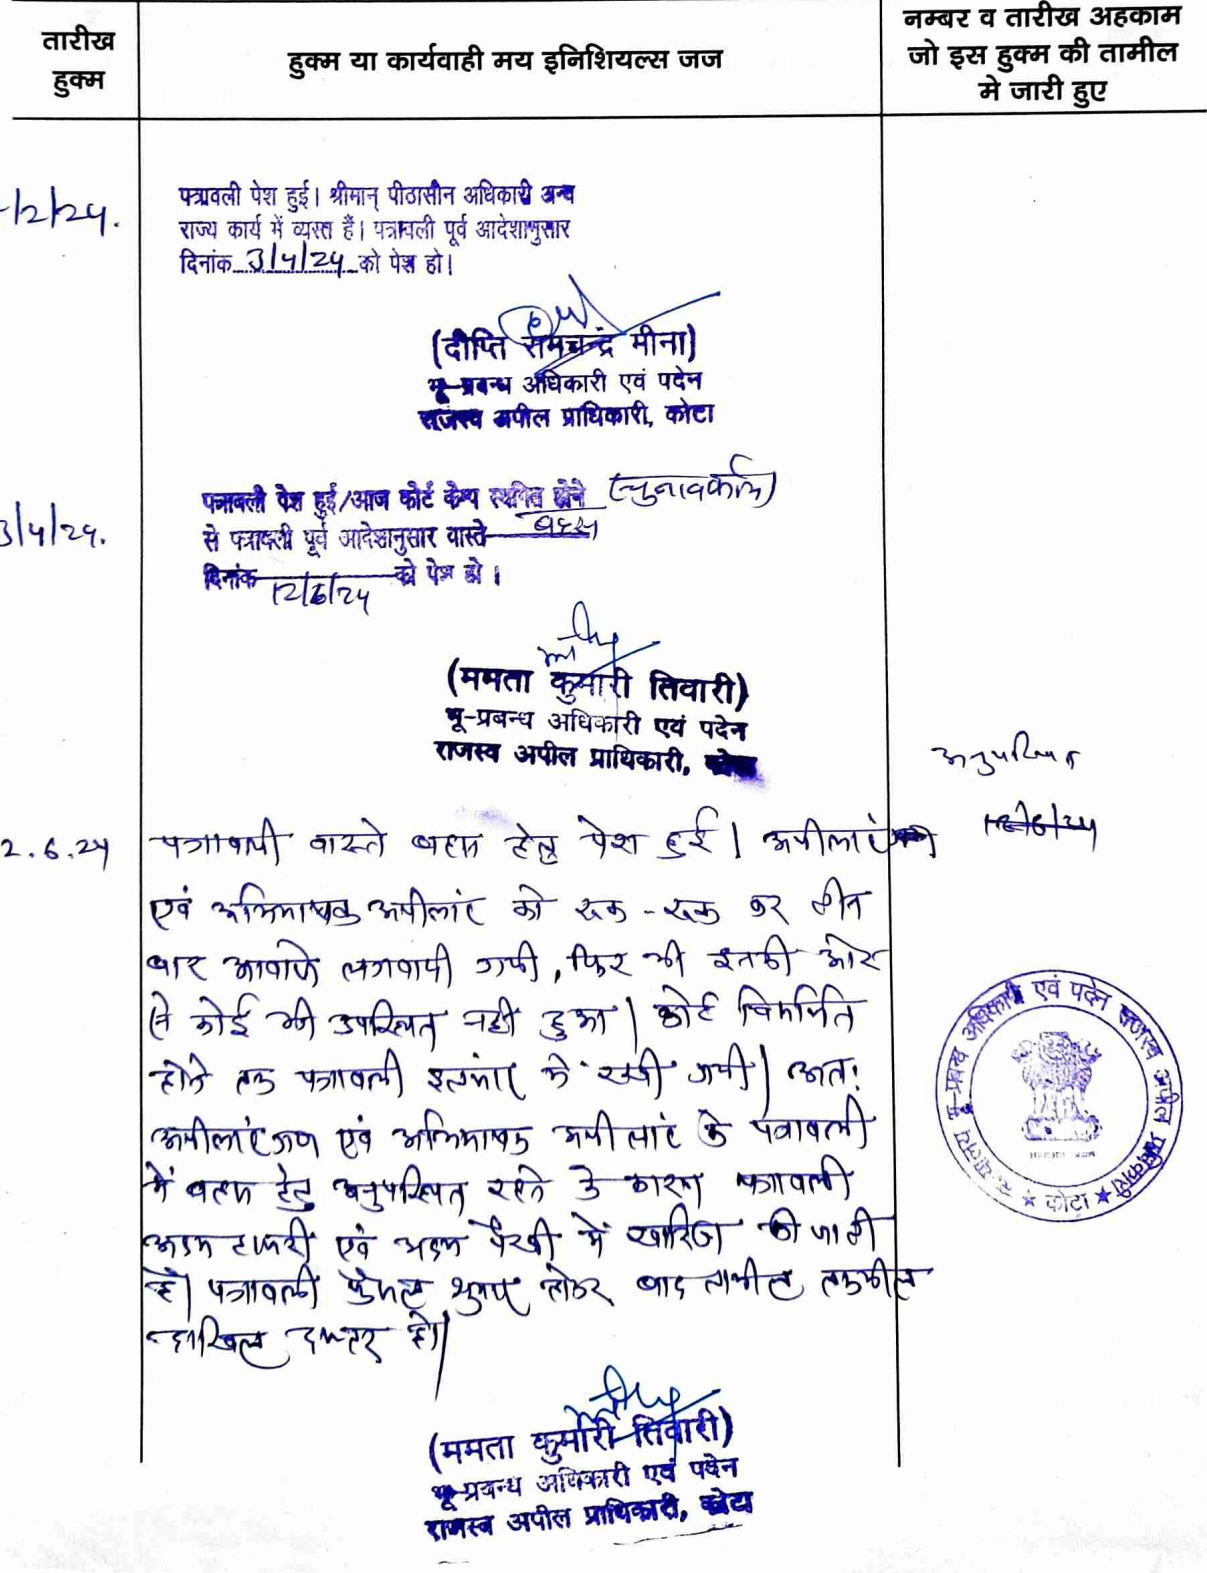 तारीख
हुक्म
हुक्म या कार्यवाही मय इनिशियल्स जज
नम्बर व तारीख अहकाम
जो इस हुक्म की तामील
मे जारी हुए
/2/24.
पत्रावली पेश हुई। श्रीमान् पीठासीन अधिकारी अन्य
राज्य कार्य में व्यस्त हैं। पत्रावली पूर्व आदेशानुसार
दिनांक 3/4/24 को पेश हो।
(दीप्ति रामचन्द्र मीना)
भू-प्रबन्ध अधिकारी एवं पदेन
राजस्व अपील प्राधिकारी, कोटा
3/4/24.
पत्रावली पेश हुई/आज कोर्ट केम्प स्थगित होने (चुनाव कार्य)
से पत्रावली पूर्व आदेशानुसार वास्ते बहस
दिनांक 12/6/24 को पेश हो।
(ममता कुमारी तिवारी)
भू-प्रबन्ध अधिकारी एवं पदेन
राजस्व अपील प्राधिकारी, कोटा
अनुपस्थित
12/6/24
2.6.24
पत्रावली वास्ते बहस हेतु पेश हुई। अपीलांट
एवं अभिभाषक अपीलांट को रूक-रूक कर तीन
बार आवाजे लगवायी गयी, फिर भी इनकी ओर
से कोई भी उपस्थित नही हुआ। कोर्ट विसर्जित
होने तक पत्रावली इन्तजार मे रखी गयी। अतः
अपीलांटगण एवं अभिभाषक अपीलांट के पत्रावली
में बहस हेतु अनुपस्थित रहने के कारण पत्रावली
अदम हाजरी एवं अदम पैरवी में खारिज की जाती
है। पत्रावली फैसल शुमार होकर बाद तामील तकमील
दाखिल दफ्तर हो।
न्यायालय भू-प्रबन्ध अधिकारी एवं पदेन राजस्व अपील प्राधिकारी
★ कोटा ★
(ममता कुमारी तिवारी)
भू-प्रबन्ध अधिकारी एवं पदेन
राजस्व अपील प्राधिकारी, कोटा